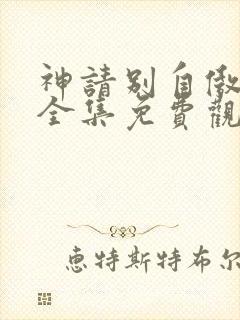 神請別自傲
全集免費觀
恵特斯特布尔